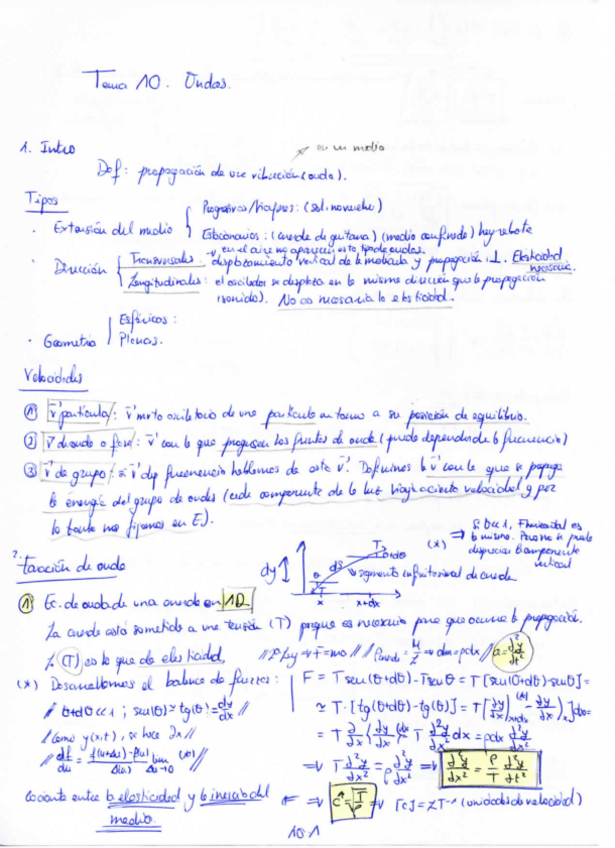 Tema 10. Ondas.
1. Intro
en un medio
Def: propagación de una vibración (onda).
Tipos
· Extensión del medio
Progresivas/viajeras: (sol, no vuelve)
Estacionarias: (cuerda de guitarra) (medio confinado) hay rebote
en el aire no aparecen este tipo de ondas.
· Dirección
Transversales: desplazamiento vertical de la molécula y propagación: ⊥. Elasticidad necesaria.
Longitudinales: el oscilador se desplaza en la misma dirección que la propagación
(sonido). No es necesaria la elasticidad.
· Geometría
Esféricas:
Planas.
Velocidades
① v⃗ partícula: v⃗ mvto oscilatorio de una partícula en torno a su posición de equilibrio.
② v⃗ de onda o fase: v⃗ con la que progresan los frentes de onda (puede depender de la frecuencia)
③ v⃗ de grupo: si v⃗ dep frecuencia hablamos de esta v⃗. Definimos la v⃗ con la que se propaga
la energía del grupo de ondas (cada componente de la luz viaja a cierta velocidad y por
lo tanto nos fijamos en E).
2.
Ecuación de onda
dy
T
θ+dθ
dS
segmento infinitesimal de cuerda
θ
T
x
x+dx
(*) ⇒ Si θ<<1, F horizontal es
la misma. Pero no se puede
despreciar la componente
vertical
① Ec. de onda de una cuerda en 1D
La cuerda está sometida a una tensión (T) porque es necesaria para que ocurra la propagación.
La (T) es lo que da elasticidad,
// 2ª Ley ⇒ F=ma // ρ cuerda = M/L ⇒ dm=ρdx // a = d²y/dt²
(*) Desarrollamos el balance de fuerzas:
F = T sen(θ+dθ) - T senθ = T [sen(θ+dθ) - senθ] =
// θ+dθ<<1; sen(θ) ≈ tg(θ) = dy/dx //
≃ T·[tg(θ+dθ) - tg(θ)] = T [(∂y/∂x)x+dx - (∂y/∂x)x] =
// Como y(x,t), se hace ∂x //
= T ∂/∂x (∂y/∂x) dx = T ∂²y/∂x² dx = ρdx ∂²y/∂t²
⇒ T ∂²y/∂x² = ρ ∂²y/∂t² ⇒ ∂²y/∂x² = ρ/T ∂²y/∂t²
cociente entre la elasticidad y la inercia del
medio.
⇐ ⇒ [c] = LT⁻¹ (unidades de velocidad)
10.1